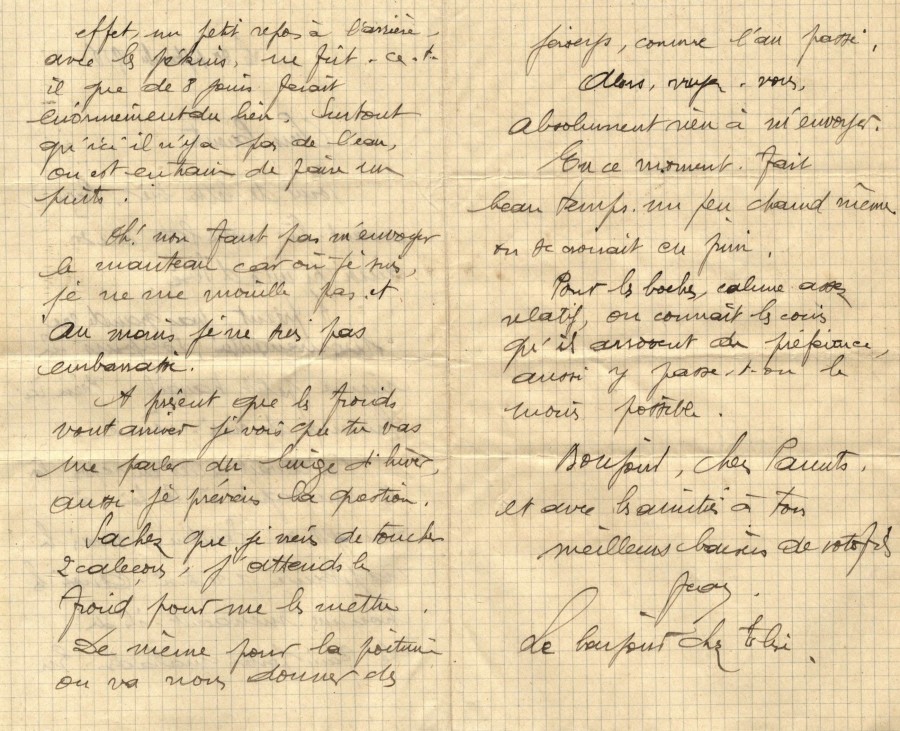 effet, un petit repos à l'arrière,
avec les pluies, ne fût-ce-t-
il que de 8 jours ferait
énormément du bien. Surtout
qu'ici il n'y a pas de l'eau,
on est en train de faire un
puits.
Oh! non faut pas m'envoyer
le manteau car où je suis,
je ne me mouille pas et
au moins je ne suis pas
embarrassé.
A présent que les froids
vont arriver je vois que tu vas
me parler du linge d'hiver,
aussi je préviens la question.
Sachez que je viens de toucher
2 caleçons, j'attends le
froid pour me les mettre.
De même pour la poitrine
on va nous donner des
jerseys, comme l'an passé.
Alors, voyez-vous,
absolument rien à m'envoyer.
En ce moment. Fait
beau temps. un peu chaud même
on se croirait en juin.
Pour les boches, calme assez
relatif, on connaît les coins
qu'ils arrosent de préférence,
aussi y passe-t-on le
moins possible.
Bonjour, chers Parents.
et avec les amitiés à tous
meilleurs baisers de votre fils
Le bonjour chez